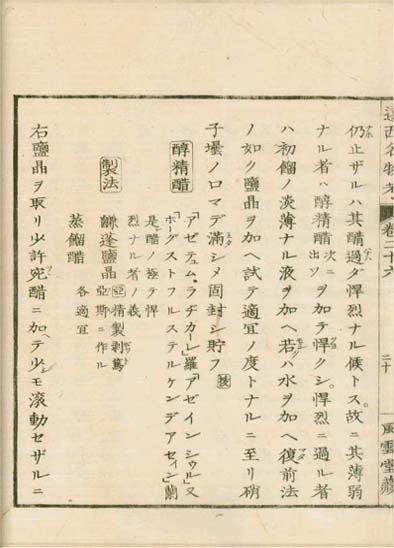 遠西名物考
卷二十六
二十
風雲堂藏
仍止ザルハ其醋過ダ悍烈ナル候トス。故ニ其薄弱
ナル者ハ醇精醋次ニ出ヅヲ加テ悍クシ。悍烈ニ過ル者
ハ初餾ノ淡薄ナル液ヲ加ヘ若ハ水ヲ加ヘ復前法
ノ如ク鹽晶ヲ加ヘ試テ適宜ノ度トナルニ至リ硝
子壜ノロマデ滿シメ固封シ貯フ
醇精醋
「アゼテュム、ラヂカーレ」羅「アゼインシウル」又
「ホーグストフルステルケンデアセイン」蘭
是醋ノ極テ悍
烈ナル者ノ義
製法
鎌蓬鹽晶 精製剥篤亞斯ニ作ル
蒸餾醋 各適宜
右鹽晶ヲ取リ少許宛醋ニ加ヘテ少モ滾動セザルニ